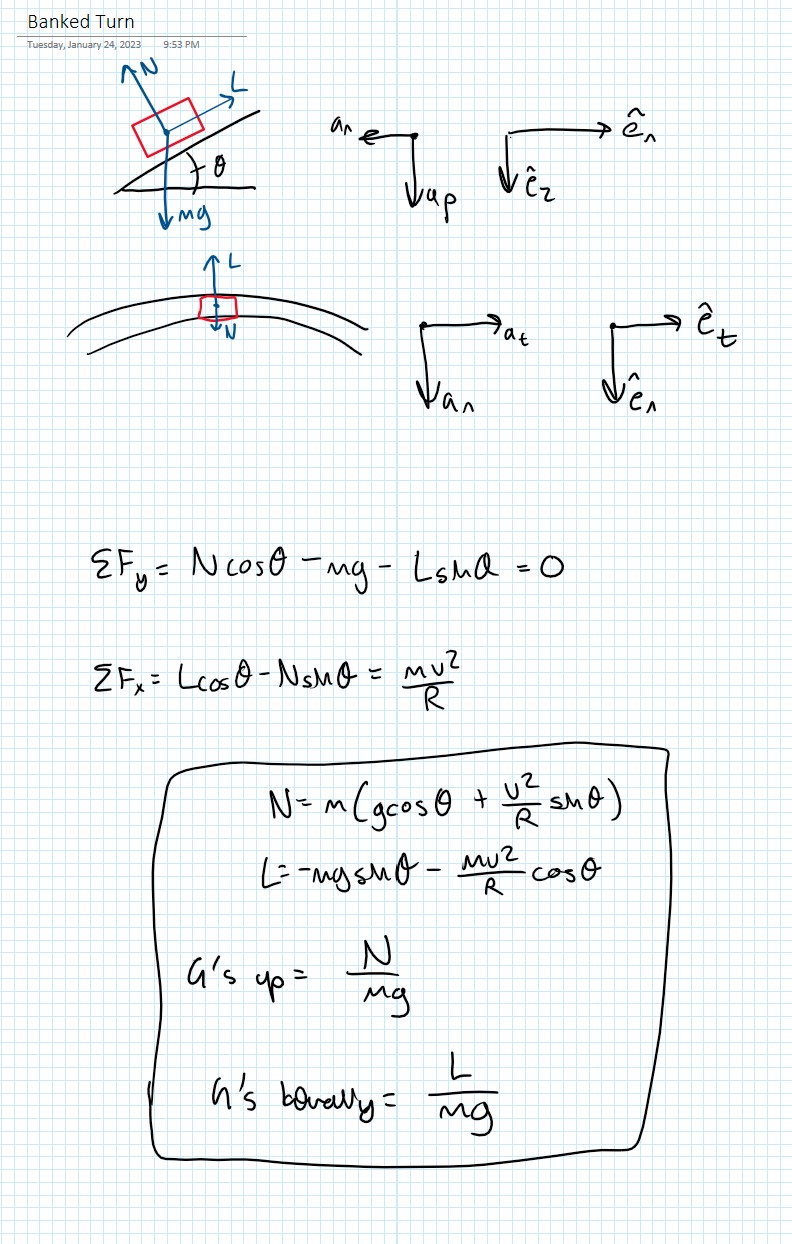 Banked Turn
Tuesday, January 24, 2023 9:53 PM
N
L
θ
mg
aₙ
aₚ
êₙ
ê_z
L
N
aₜ
aₙ
êₜ
êₙ
ΣF_y = N cosθ - mg - L sinθ = 0
ΣFₓ = L cosθ - N sinθ = mv²/R
N = m(g cosθ + v²/R sinθ)
L = -mg sinθ - mv²/R cosθ
G's up = N/mg
G's = L/mg